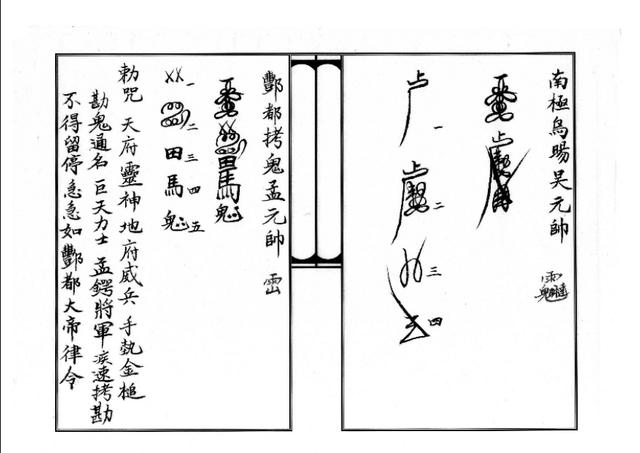 南極烏暘吴元帥
一
二
三
四
酆都拷鬼孟元帥
一
二
田 三
馬 四
五
勅咒 天府靈神地府威兵 手執金槌
勘鬼通名 巨天力士 孟鍔將軍 疾速拷勘
不得留停急急如酆都大帝律令